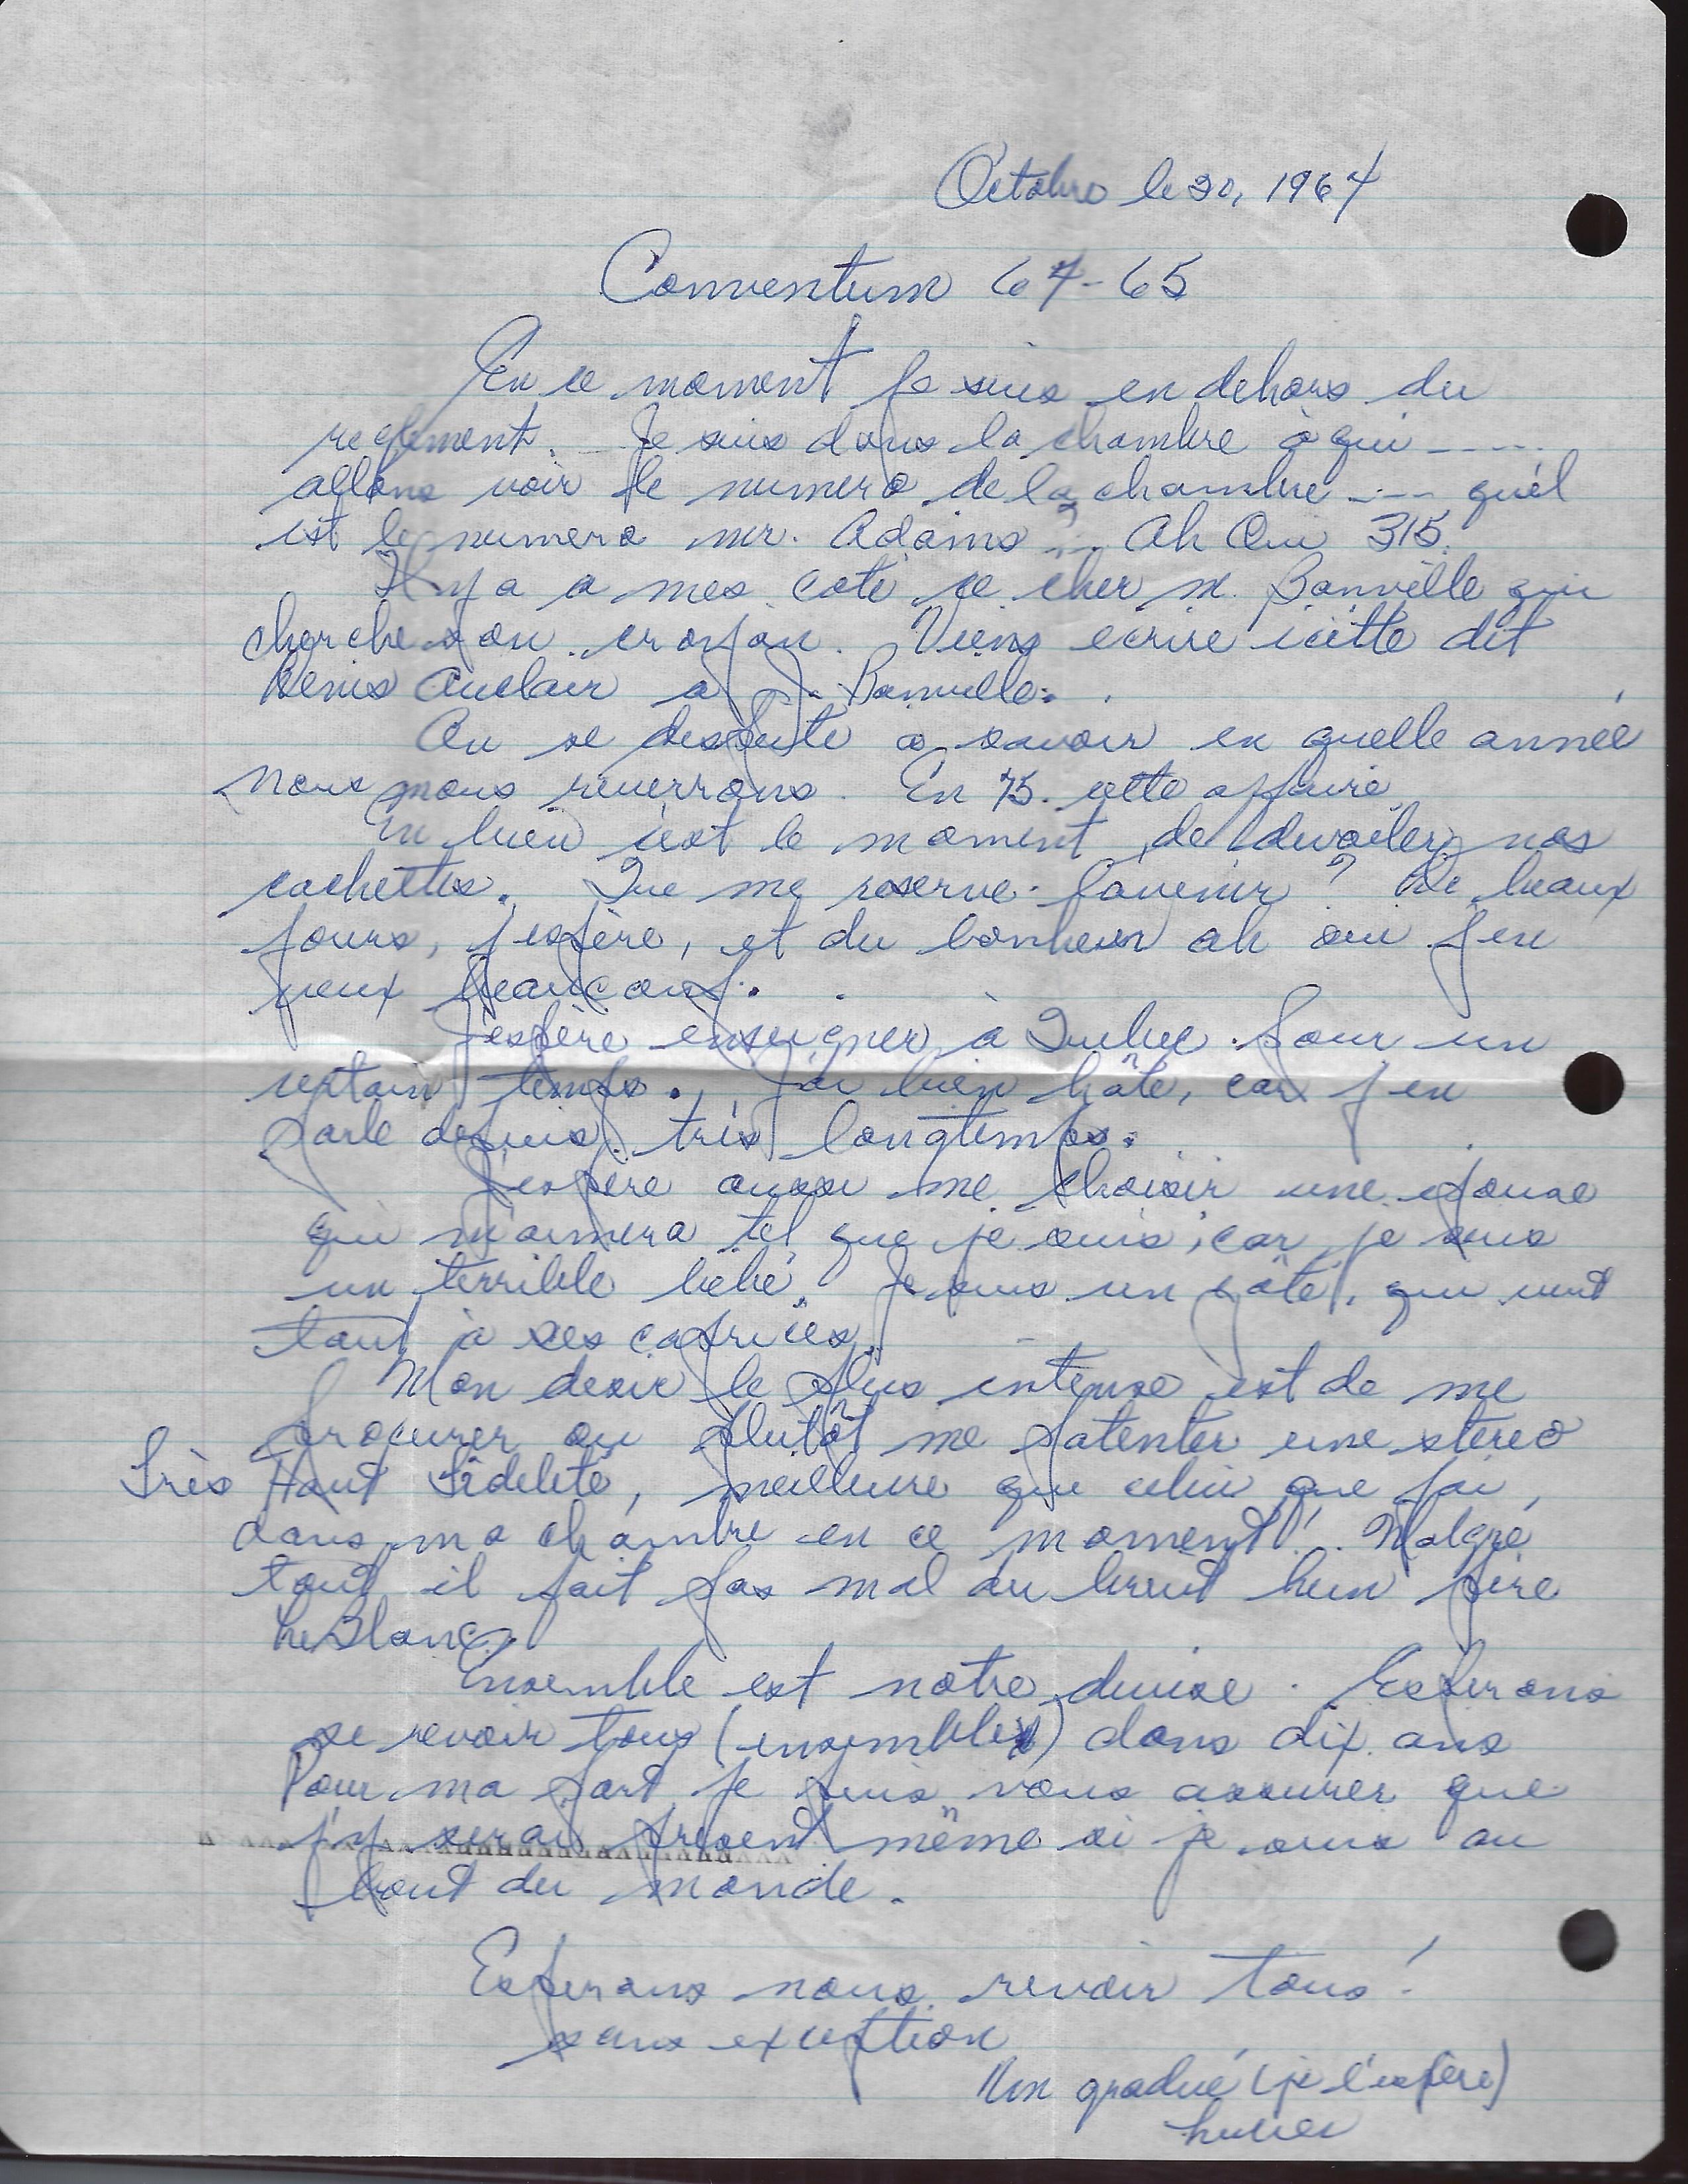 Octobre le 30, 1964
Conventum 64-65
En ce moment je suis en dehors du
reglement. Je suis dans la chambre à qui ----
allons voir le numero de la chambre --- quel
est le numero mr. Adams ? .. Ah Oui 315.
Il y a a mes coté ce cher m. Banville qui
cherche son crayon. Viens ecrire icitte dit
Denis Auclair a J. Banville.
On se dispute a savoir en quelle année
nous nous reverrons. En 75. cette affaire
bien c'est le moment de devoiler nos
cachettes. Que me reserve l'avenir ? De beaux
jours, j'espère, et du bonheur ah oui j'en
veux beaucoup.
J'espère enseigner à Quebec pour un
certain temps. J'ai bien hâte, car j'en
parle depuis très longtemps.
J'espère aussi me choisir une epouse
qui m'aimera tel que je suis, car je suis
un terrible bébé. Je suis un gâté, qui veut
tout à ses caprices.
Mon desir le plus intense est de me
procurer ou plutôt me patenter une stereo
Très Haut Fidelité, meilleure que celui que j'ai,
dans ma chambre en ce moment! Malgré
tout il fait pas mal du bruit hein père
LeBlanc.
Ensemble est notre devise. Esperons
se revoir tous (ensemble) dans dix ans
Pour ma part je puis vous assurer que
j'y serai présent même si je suis au
bout du monde.
Esperons nous revoir tous!
sans exception
Un gradué (je l'espère)